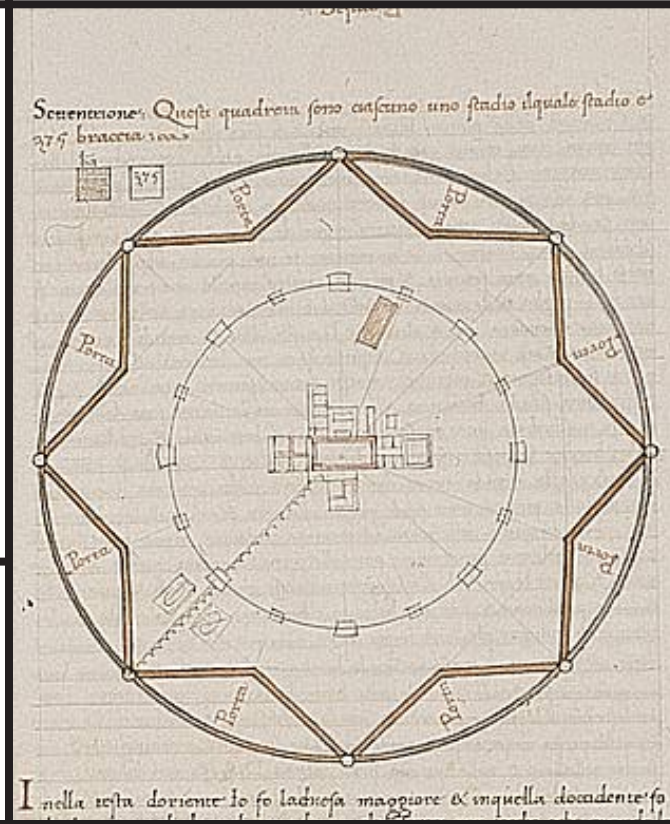 Settentrione. Questi quadretti sono ciascuno uno stadio ilquale stadio e
375 braccia
375
Porta
Porta
Porta
Porta
Porta
Porta
Porta
Porta
I nella testa doriente Io fo lachiesa maggiore & inquella doccidente fo